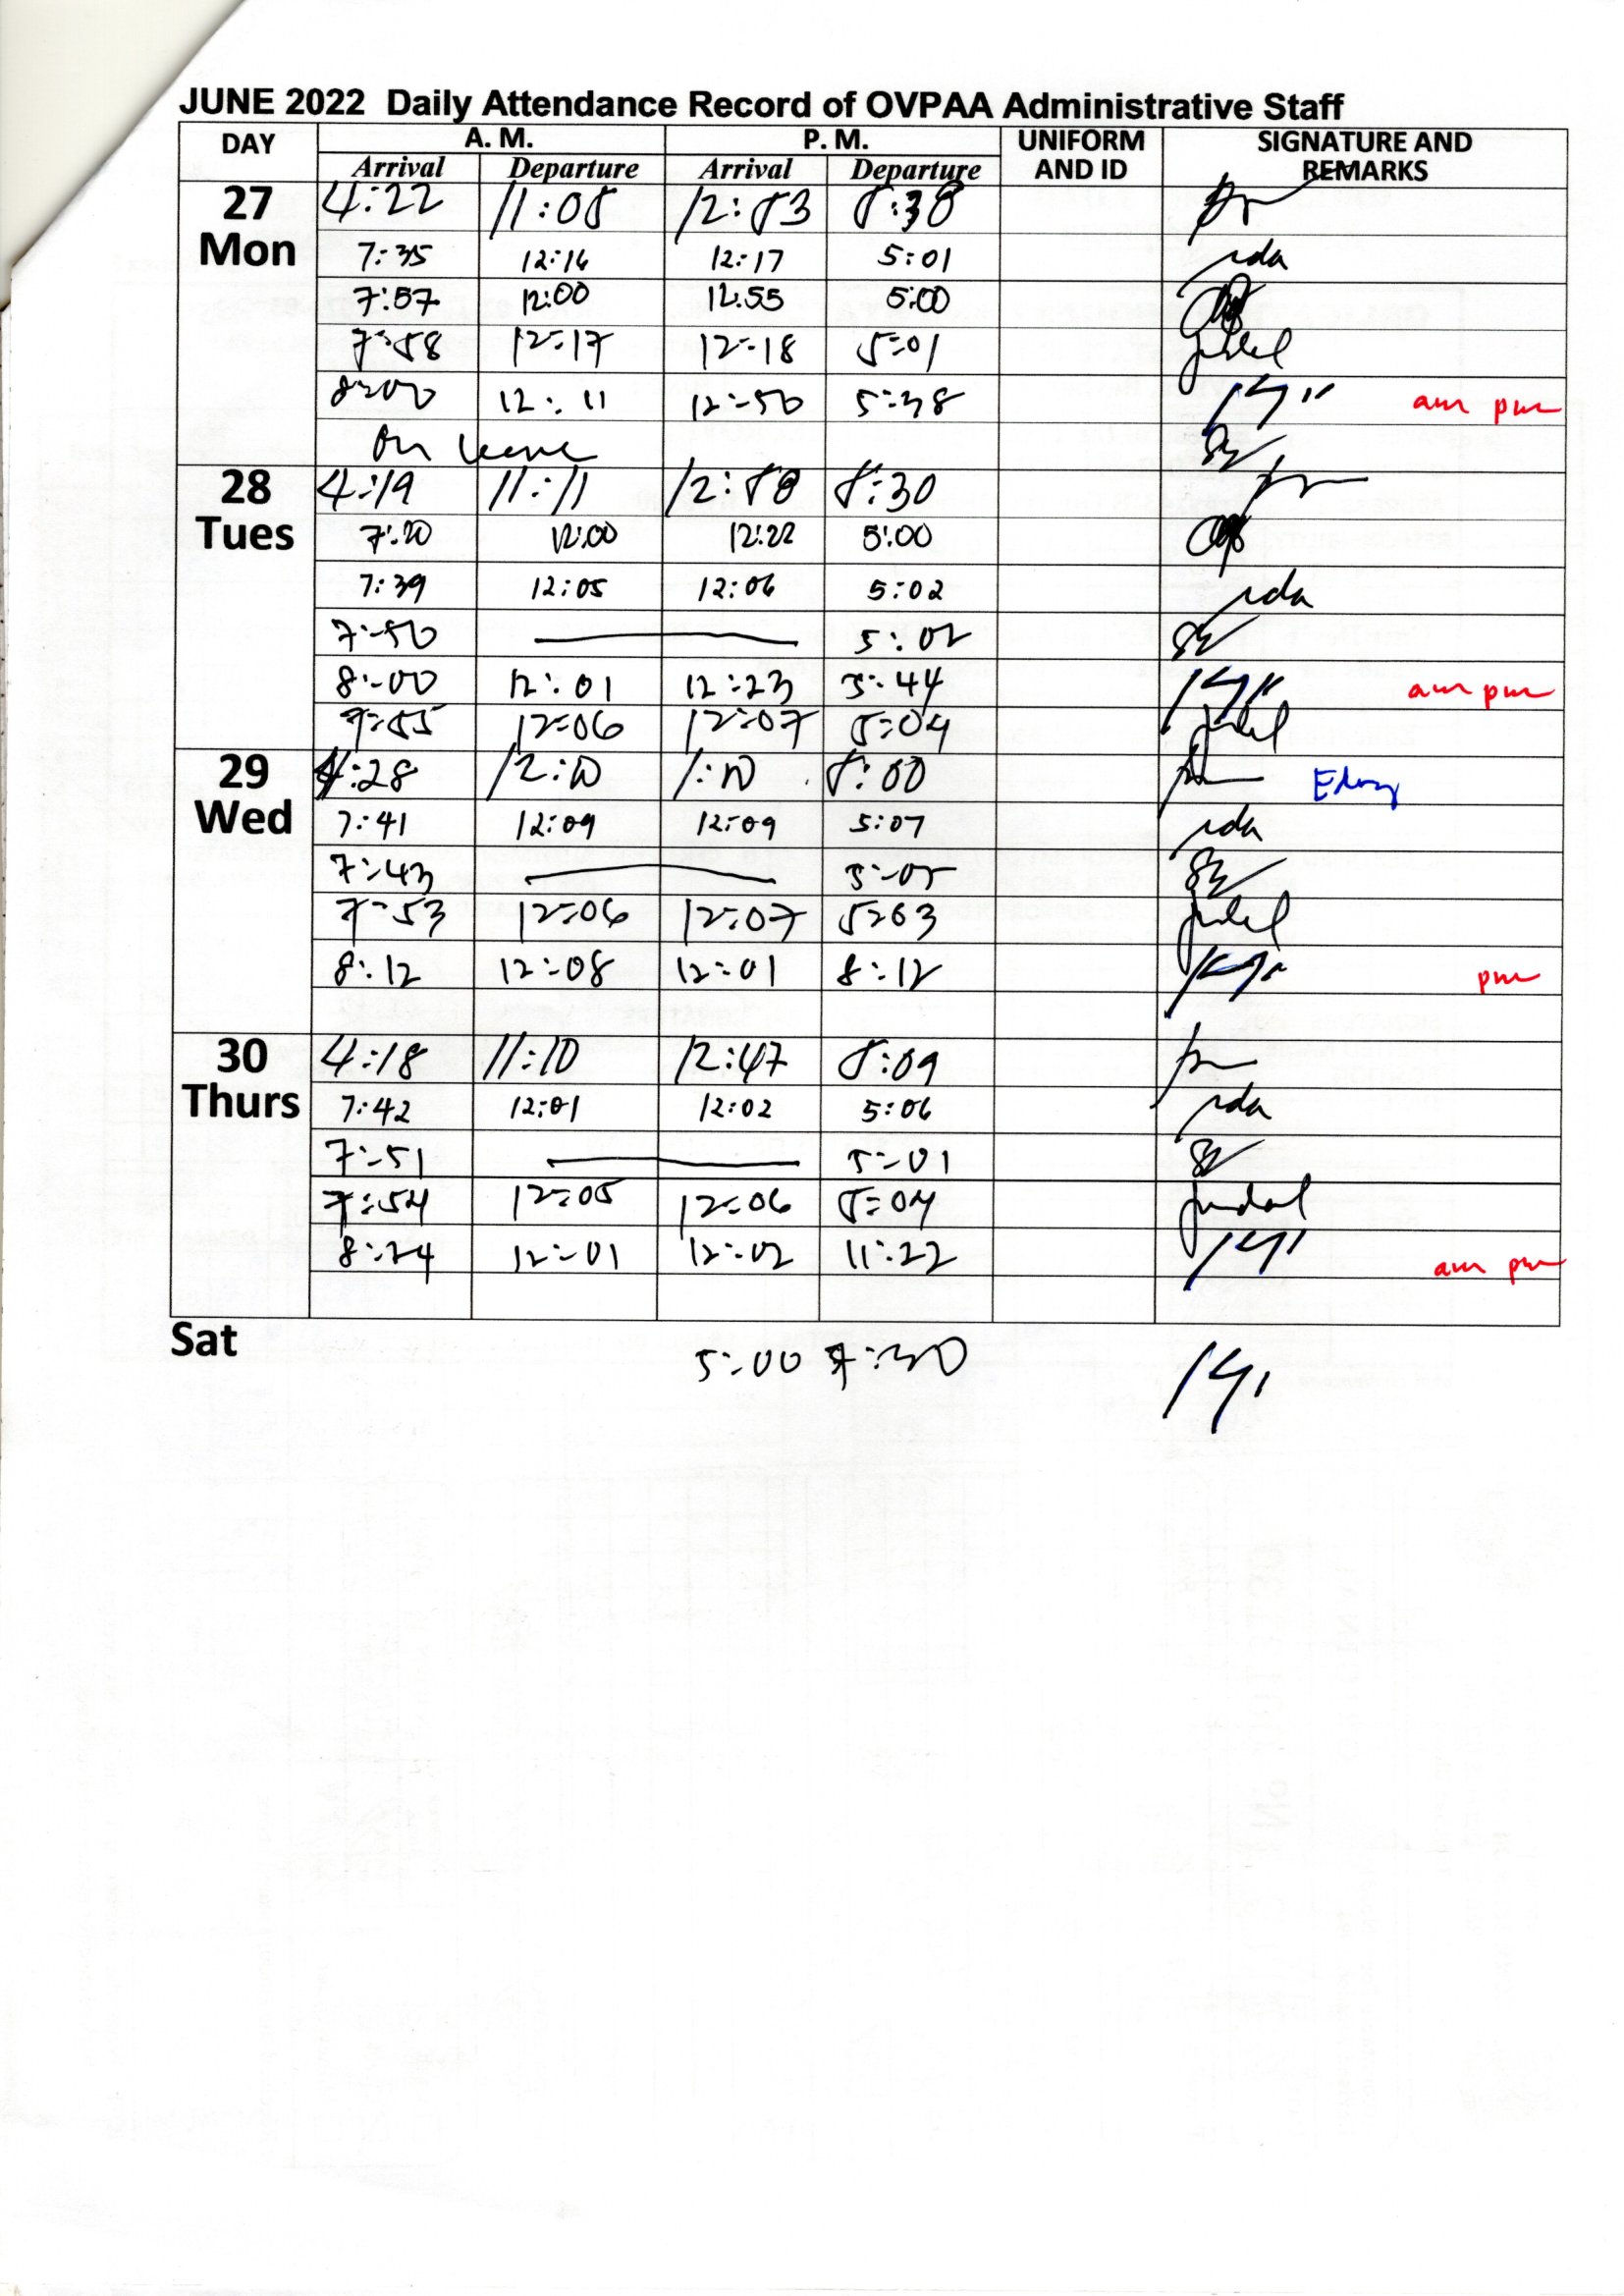 JUNE 2022 Daily Attendance Record of OVPAA Administrative Staff
DAY A. M. P. M. UNIFORM AND ID SIGNATURE AND REMARKS
Arrival Departure Arrival Departure
27 Mon
4:22 11:05 12:53 5:38
7:35 12:16 12:17 5:01 rda
7:57 12:00 12:55 5:00
7:58 12:17 12:18 5:01
8:00 12:11 12:50 5:38 am pm
On leave
28 Tues
4:19 11:11 12:58 5:30
7:20 12:00 12:22 5:00
7:39 12:05 12:06 5:02 rda
7:50 5:02
8:00 12:01 12:23 5:44 am pm
7:55 12:06 12:07 5:04
29 Wed
4:28 12:10 1:10 5:00
7:41 12:09 12:09 5:07 rda
7:43 5:05
7:53 12:06 12:07 5:03
8:12 12:08 12:01 8:12 pm
30 Thurs
4:18 11:10 12:47 5:09
7:42 12:01 12:02 5:06 rda
7:51 5:01
7:54 12:05 12:06 5:04
8:24 12:01 12:02 11:22 am pm
Sat 5:00 7:30